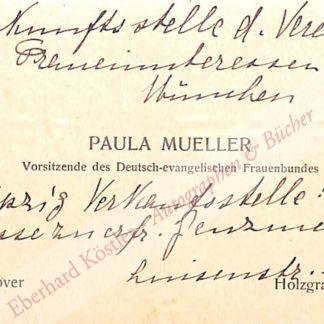 kunftsstelle d. Vere
Fraueninteressen
München
PAULA MUELLER
Vorsitzende des Deutsch-evangelischen Frauenbundes
pzig Verkaufsstelle
Luisenstr.
over Holzgra
Eberhard Köstler Autographen & Bücher